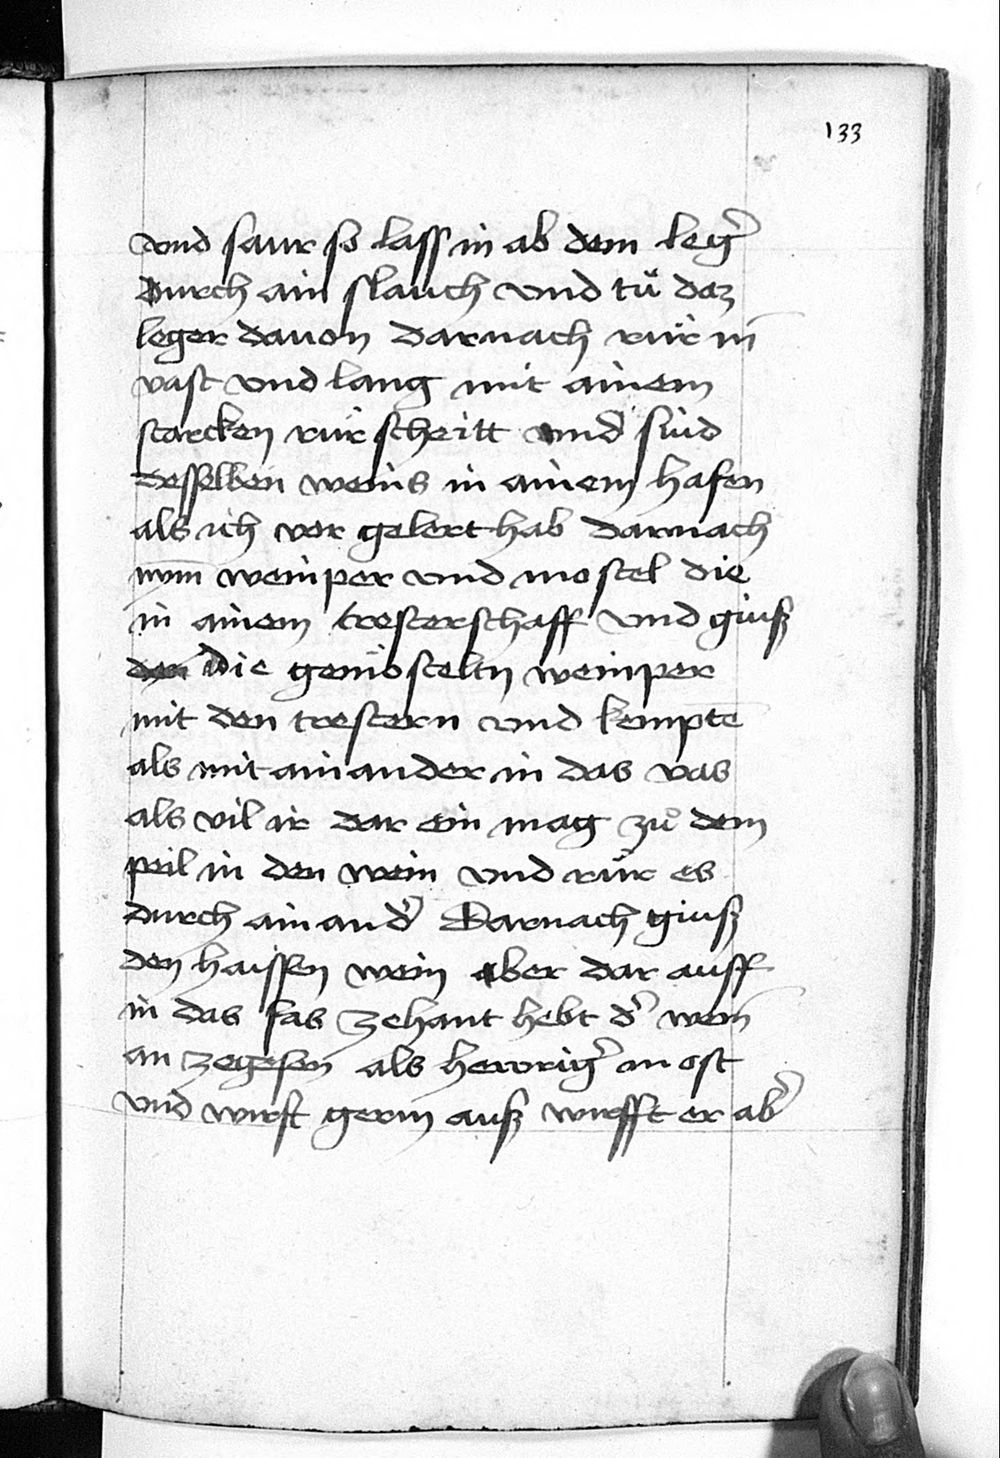 133
vnd saur so lass in ab dem leg͛
durch ain slauch vnd tuͤ daz
leger dauon darnach ruͤr in̄
vast vnd lang mit ainem
starcken ruͤr scheitt vnd sɯ́d
desselben weins in ainem hafen
als ich vor gelert hab darnach
nym̄ weinper vnd mostel die
in ainem tresterschaff vnd giuß
den die gemosteltn weinper
mit den trestern vnd kemptē
als mit ain ander in das vas
als vil ir dar ein mag zuͦ dem
peil in den wein vnd ruͤr es
durch ain and͛ Darnach giuß
den haissen wein aber dar auff
in das fas zehant hebt d͛ wein
an zegesen als hewrig͛ most
vnd wirft germ auß wirfft er ab͛